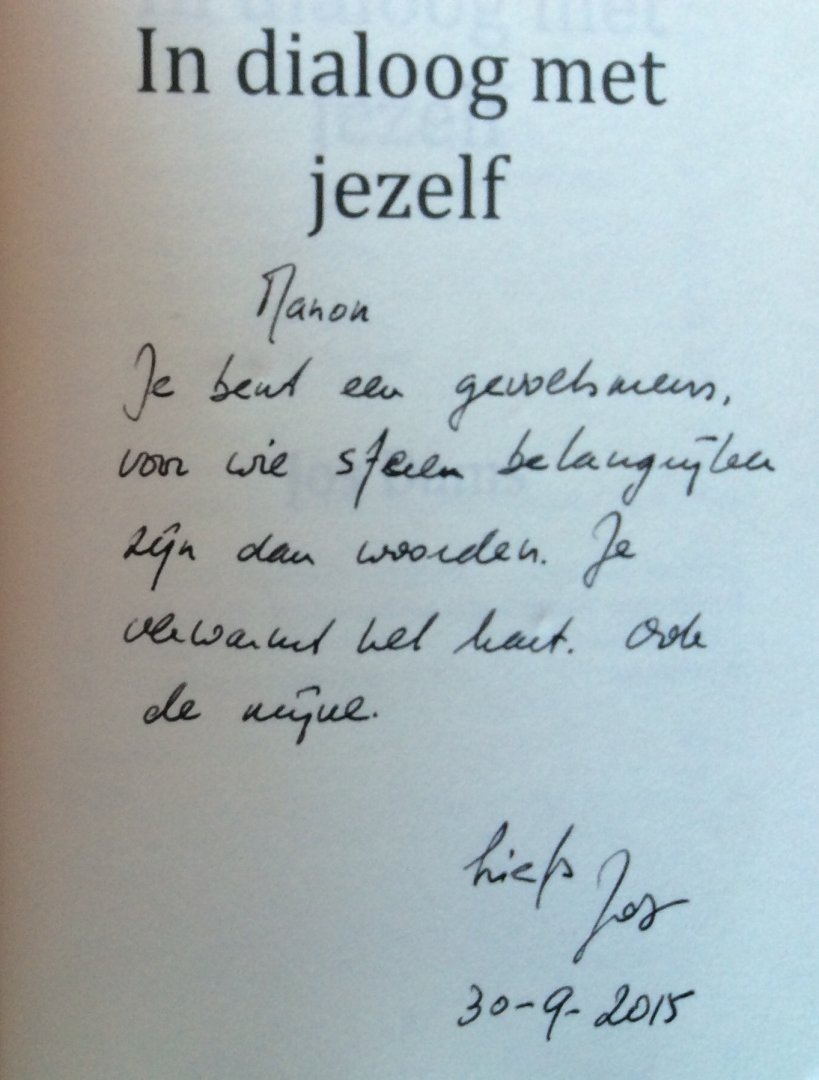 In dialoog met
jezelf
Manon
Je bent een gevoelsmens,
voor wie sferen belangrijker
zijn dan woorden. Je
verwarmt het hart. Ook
de mijne.
Liefs Jos
30-9-2015